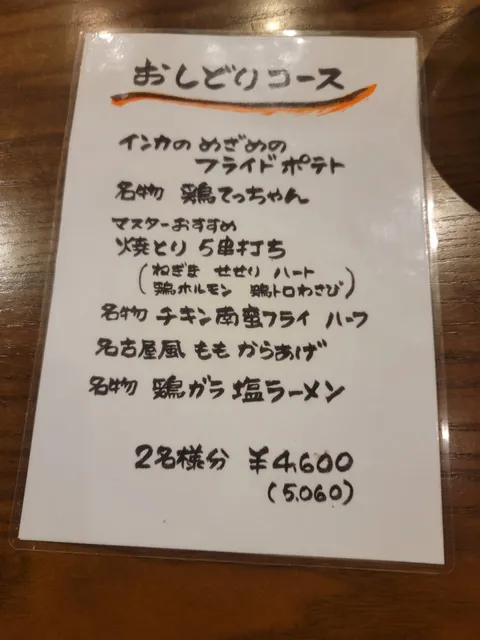 おしどりコース
インカのめざめの
フライドポテト
名物 鶏てっちゃん
マスターおすすめ
焼とり 5串打ち
(ねぎま せせり ハート
鶏ホルモン 鶏トロわさび)
名物 チキン南蛮フライ ハーフ
名古屋風 ももからあげ
名物 鶏ガラ塩ラーメン
2名様分 ¥4,600
(5,060)